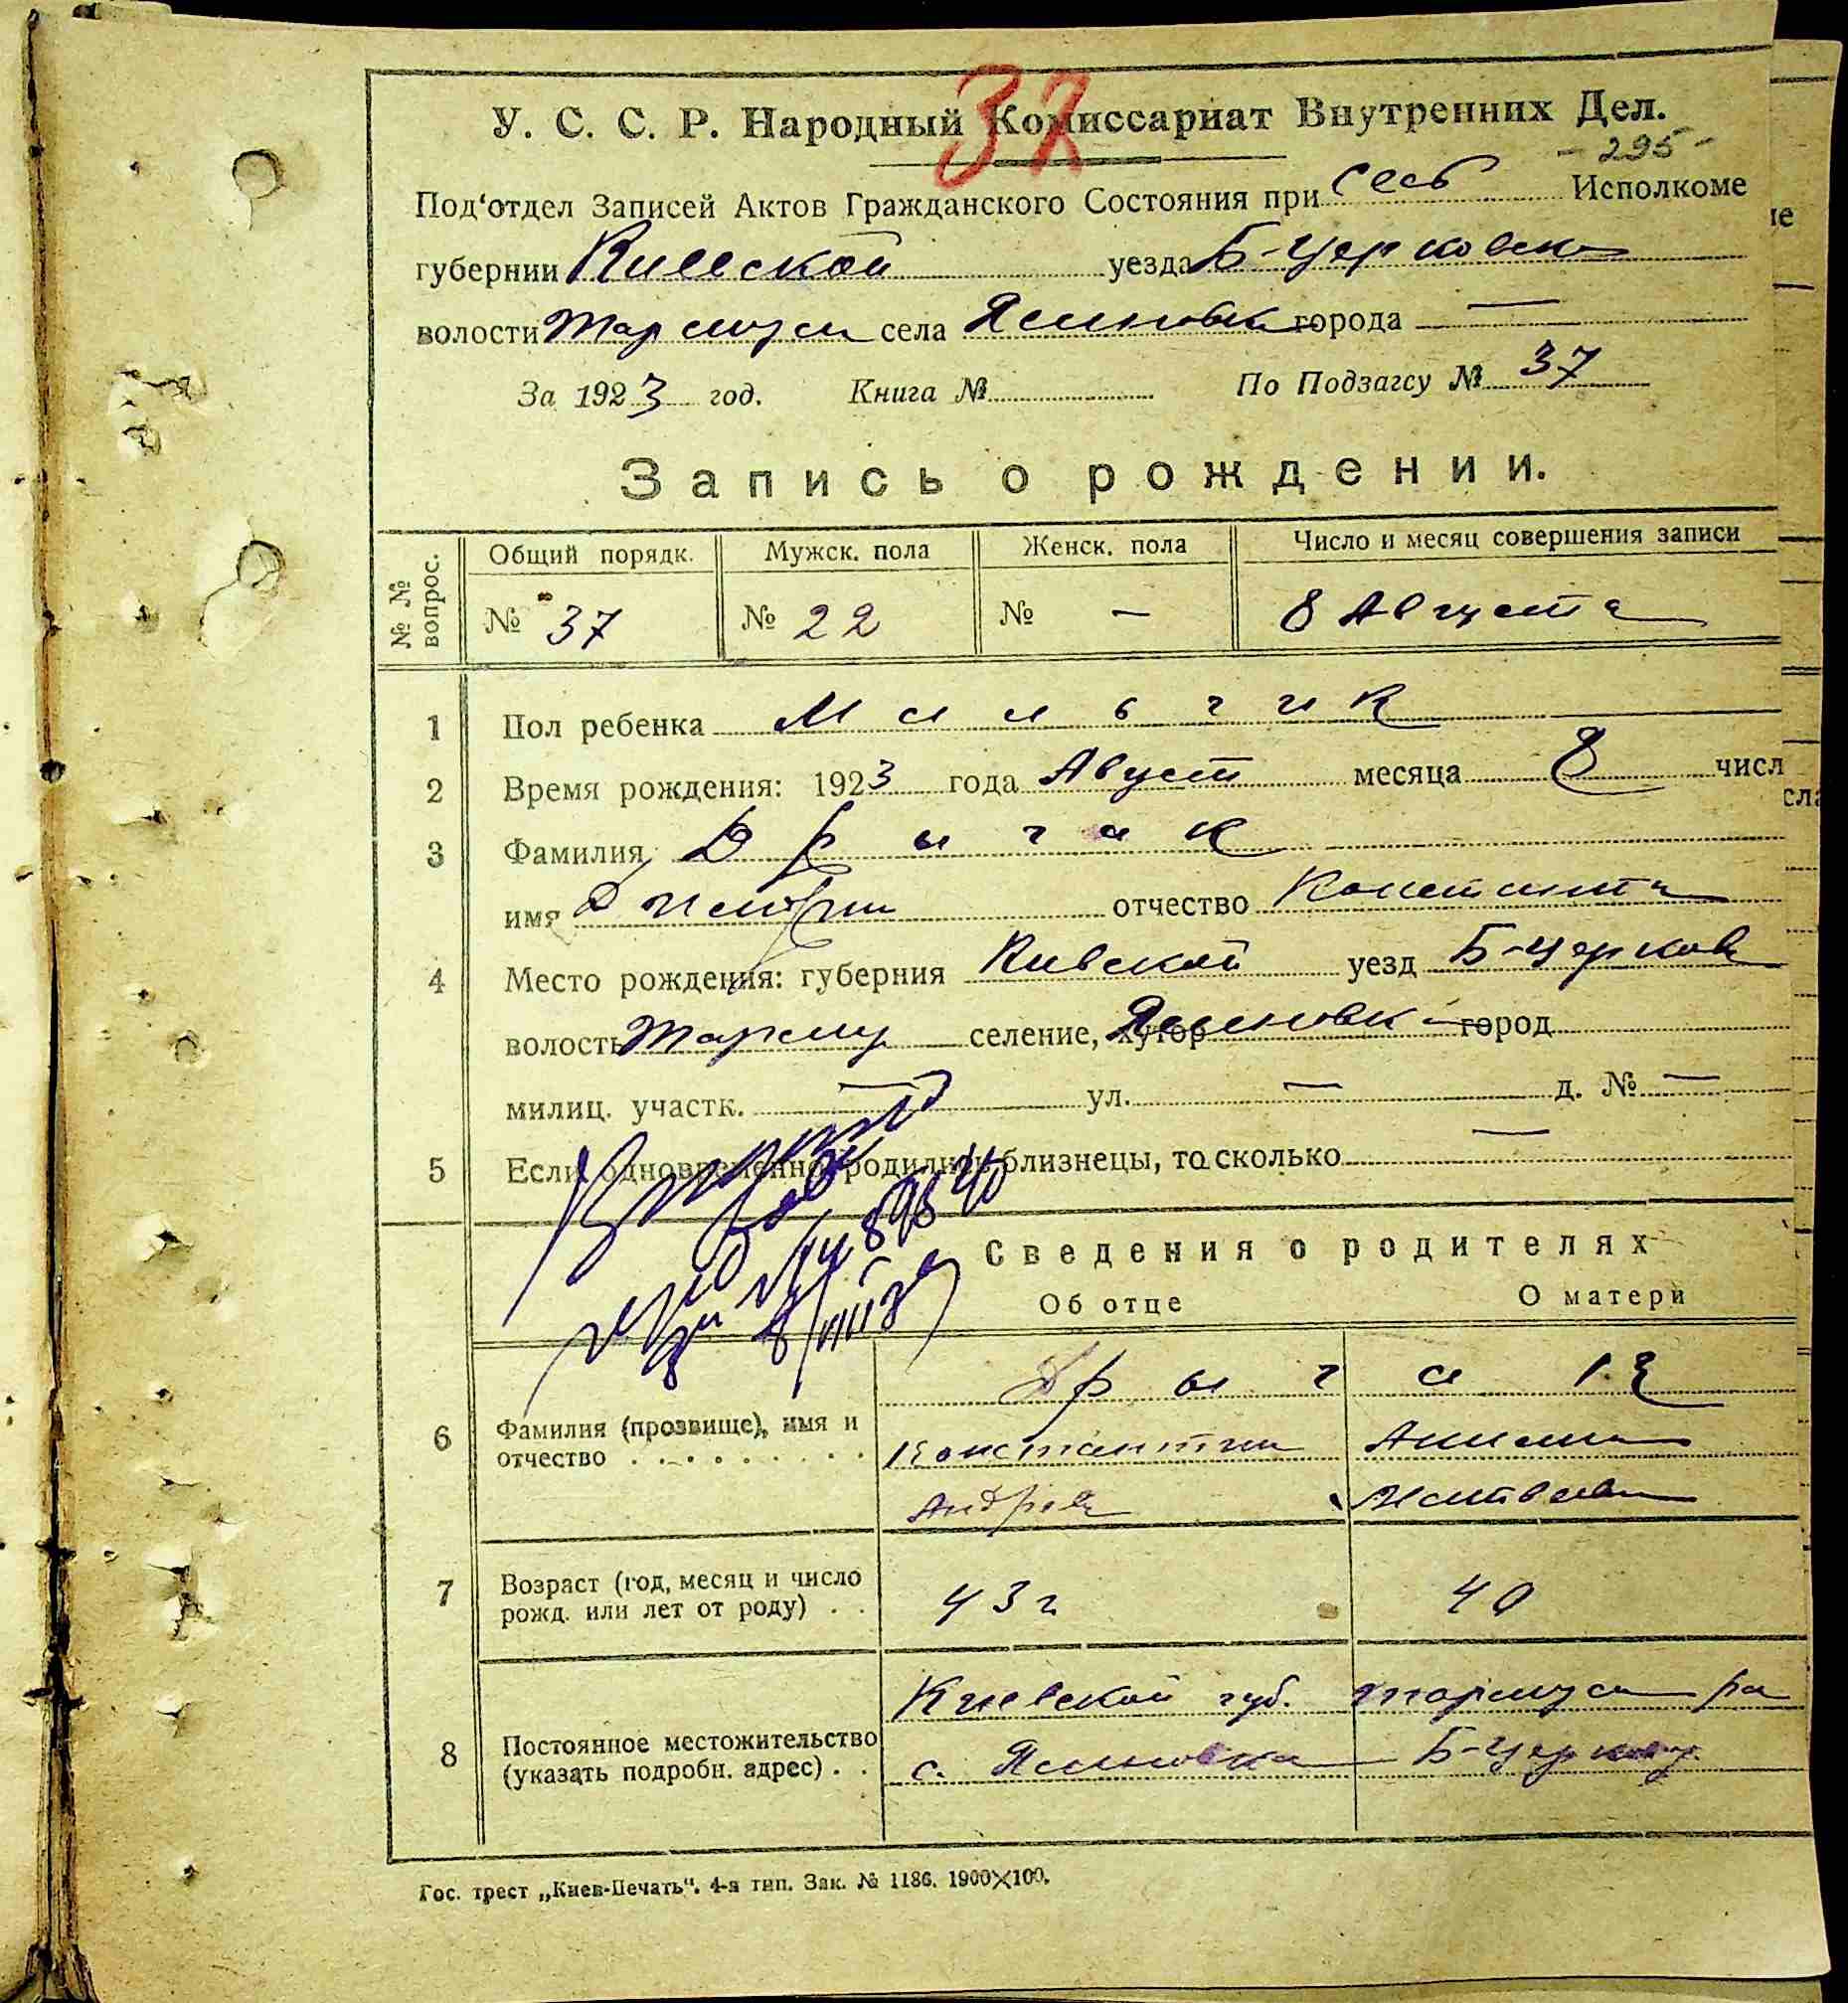 37
У. С. С. Р. Народный Комиссариат Внутренних Дел.
- 295 -
Под'отдел Записей Актов Гражданского Состояния при Исполкоме
губернии Киевской уезда Б-Церковско
волости села Ясиновка города —
За 1923 год. Книга № По Подзагсу № 37
Запись о рождении.
№ № вопрос.
Общий порядк. Мужск. пола Женск. пола Число и месяц совершения записи
№ 37 № 22 № — 8 Августа
1 Пол ребенка Мальчик
2 Время рождения: 1923 года Август месяца 8 числ
3 Фамилия Дрыгак
имя Дмитрий отчество
4 Место рождения: губерния Кивской уезд Б-Церков
волость селение, хутор Ясиновка город
милиц. участк. — ул. — д. № —
5 Если одновременно родились близнецы, то сколько —
Сведения о родителях
Об отце О матери
Дрыгак
6 Фамилия (прозвище), имя и
отчество
Константин
Андреев
7 Возраст (год, месяц и число
рожд. или лет от роду)
43 г 40
8 Постоянное местожительство
(указать подробн. адрес)
Киевской губ.
с. Ясиновка Б-Церков
Гос. трест „Киев-Печать". 4-я тип. Зак. № 1186. 1900×100.